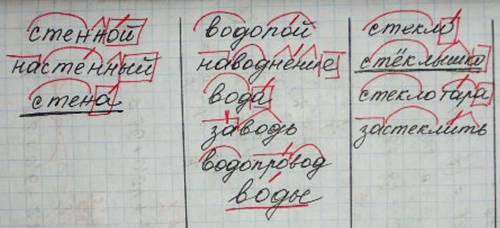 стенной
настенный
стена
водопой
наводнение
вода
заводь
водопровод
воды
стекло
стёклышко
стеклотара
застеклить